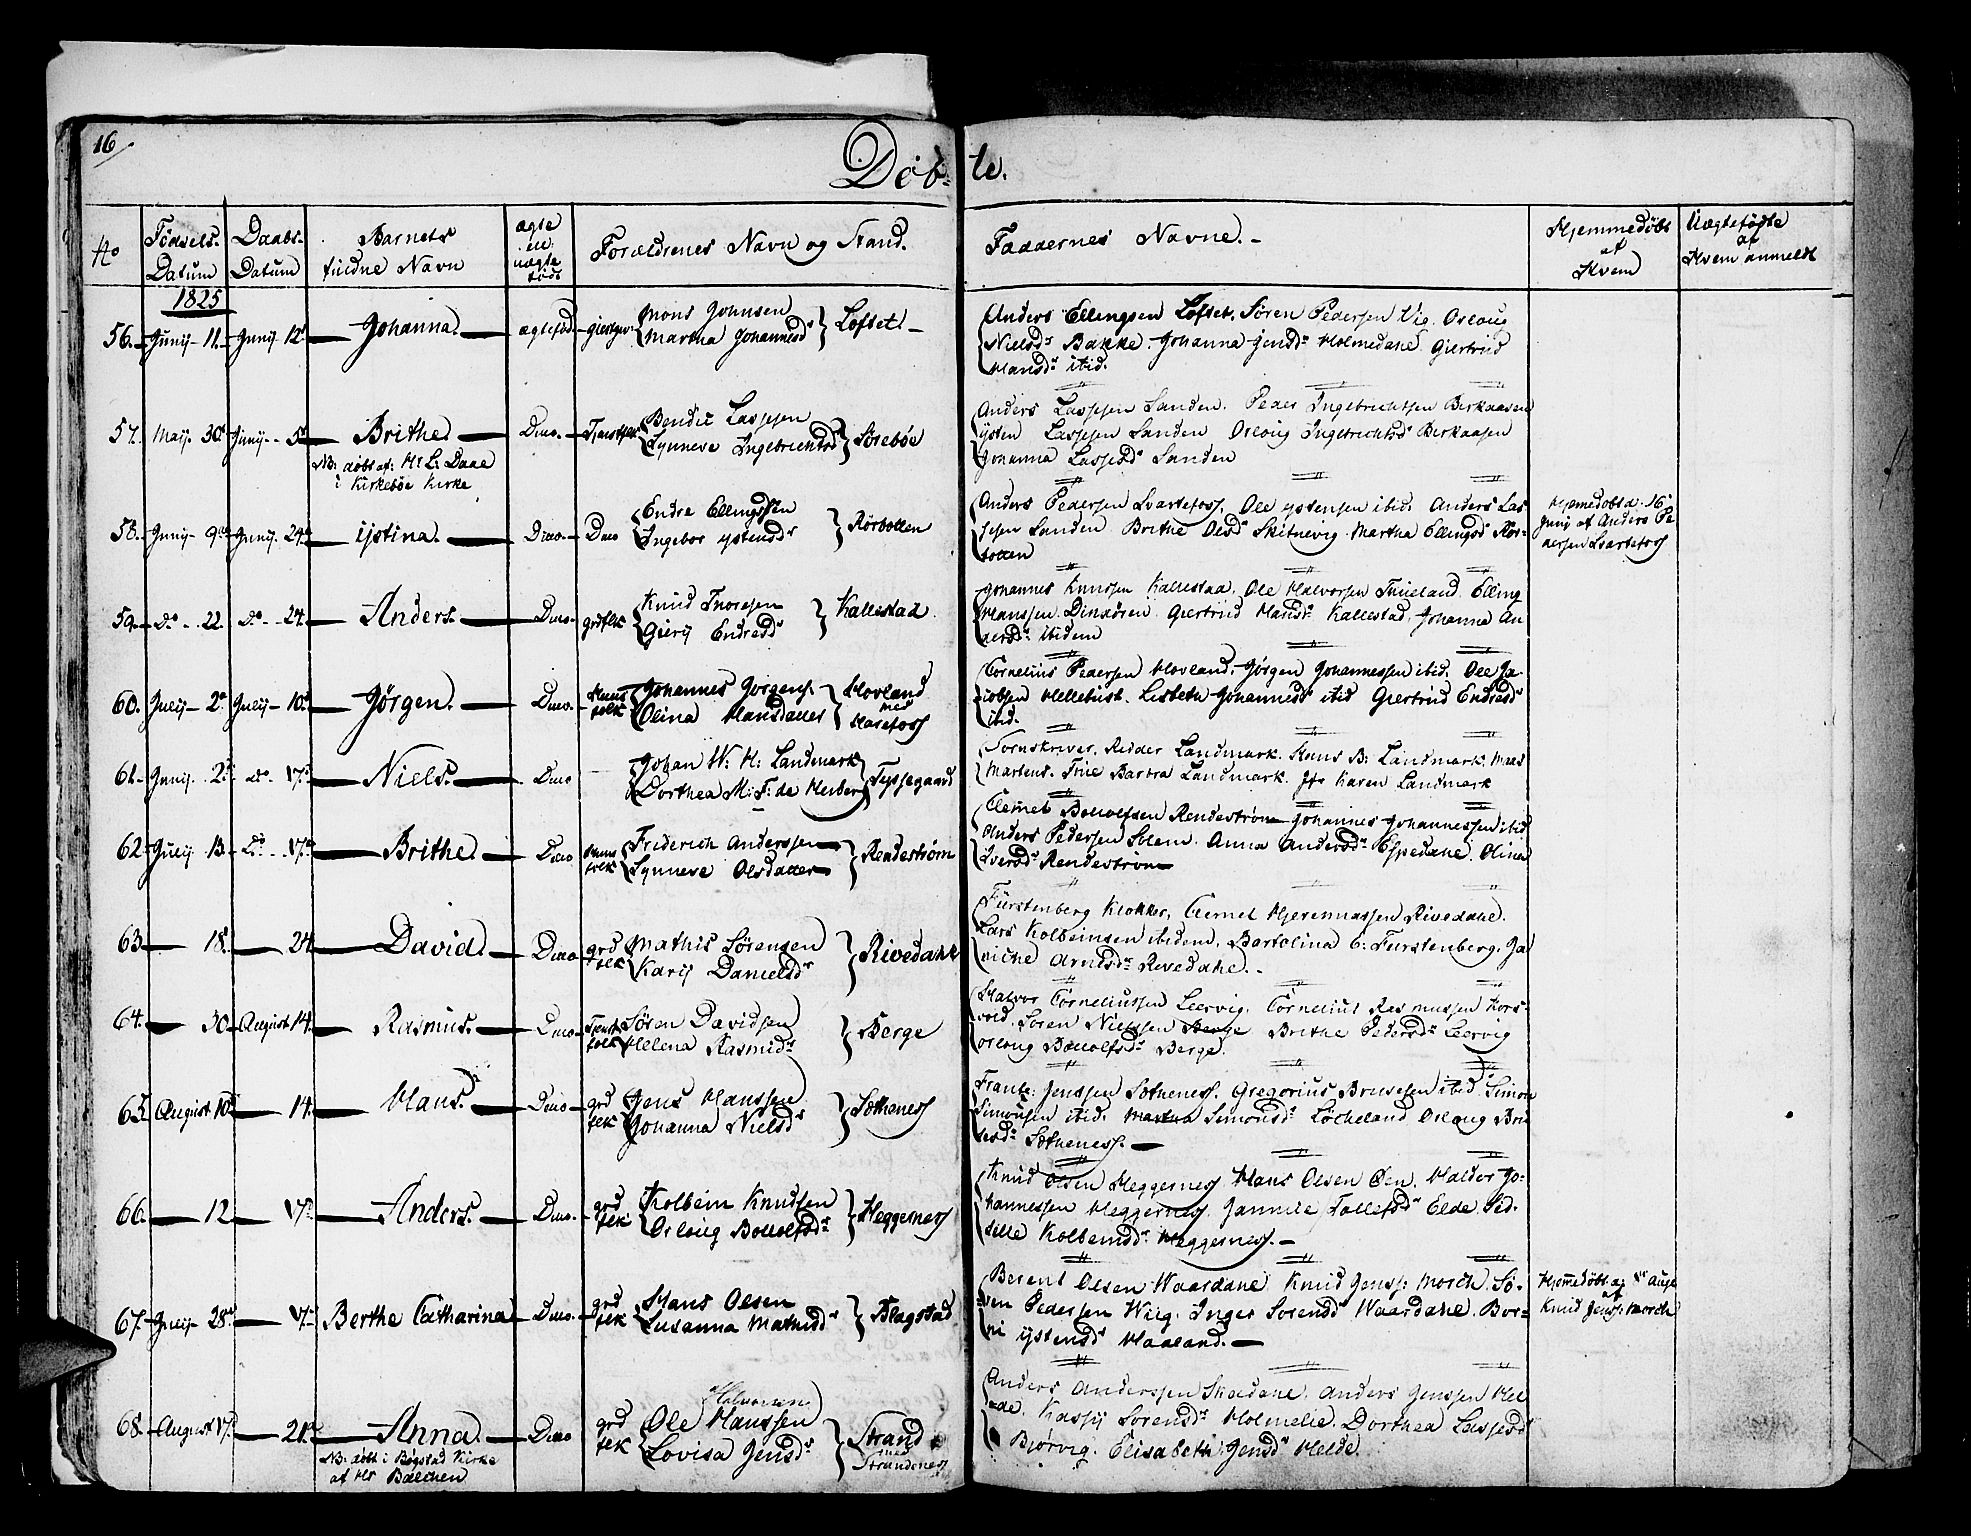 16
Døb- te.
No
Fødsels- Datum
Daabs- Datum
Barnets fulde Navn
ægte ell. uægte født
Forældrenes Navn og Stand.
Faddernes Navne.-
Hjemmedøbt af Hvem
Uægtefødte af Hvem anmeldt
1825
56. Junij 11. Junij 12t Johanna. ægtefød
Mons Johnsen
Martha Johannesdr Løfset.-
Anders Ellingsen Løfset, Søren Pedersen Vig. Oslaug
Nielsdr Bakke. Johanna Jensdr Holmedahl. Giertrud
Hansdr ibid.
57. Maij. 30t Junij 5t Brithe Ditto.
NB: døbt af: Hr L: Daae
i Kirkebøe Kirke
Bendic Lassesen
Synneve Ingebrichtsdr Sørebøe
Anders Lassesen Sanden. Peder Ingebrichtsen Birkaasen
ijsten Lassesen Sanden Oslaug Ingebrichtsdr Birkaasen
Johanna Lassesdr Sanden
58. Junij 9de Junij 24de ijstina. Ditto Ditto
Endre Ellingsen
Ingebor ijstensdr Rørbotten
Anders Pedersen Svartefoss, Ole ijstensen ibid. Anders Las
sesen Sanden Brithe Olsdr Skitnevig. Martha Ellingsdr Rør-
botten
Hjemmedøbt d: 16
Junij af Anders Pe
dersen Svartefoss
59. Do 22. Do 24. Anders. Ditto grdflk
Knud Thoresen
Gierij Endresdr Kallestad
Johannes Knudsen Kallestad, Ole Halvorsen Thueland. Elling
Hanssen. Dinadren. Giertrud Hansdr Kallestad, Johanna An
dersdr ibidem
60. Julij 2de Julij 10de Jørgen. Ditto. Huus folk
Johannes Jørgens.
Olina Hansdatter Hovland
Cornelius Pedersen Hovland, Jørgen Johannessen ibid. Ole Ja-
cobsen Helletust. Lisbeth Johannesdr ibid Giertrud Endresdr
ibid.
61. Junij 2d Do 17de Niels. Ditto
Johan W: H: Landmark
Dorthea M: F: de Herberg Tyssegaard
Sornskriver, Ridder Landmark. Huus B: Landmark, Mads
Martens. Frue Barbra Landmark. Jfr Karen Landmark
62. Julij 13. Do 17de Brithe. Ditto Huus folk
Friderich Anderssen
Synneve Olsdatter Rendestrøm
Clemet Botolfsen Rendestrøm Johannes Johannessen ibid
Anders Pedersen Solem. Anna Andersdr Espedahl. Olina
Iversdr Rendestrøm
63 18. 24. David. Ditto grd folk
Mathis Sørensen
Karij Danielsdr Rivedahl
Furstenberg Klokker, Clemet Hjerenmassen Rivedahl.
Lars Kolbeinsen ibidem, Bartolina C: Furstenberg. Ja
niche Arnesdr Rivedahl.-
64. 30. August 14. Rasmus. Ditto Tjenst folk
Søren Davidsen
Helena Rasmusdr Berge
Halvor Corneliussen Leervig, Cornelius Rasmussen Kors-
vold. Søren Nielssen Berge Brithe Pedersdr Leervig
Oslaug Botolfsdr Berge.
65. August 10de 14. Hans. Ditto grd folk
Jens Hanssen
Johanna Nielsdr Sothenes
Frantz: Jenssen Sothenes. Gregorius Brusesen ibid. Simon
Simonsen ibid. Martha Simonsdr Løcheland Oslaug Bru
sesdr Sotheness.
66. 12. 17de Anders. Ditto. grd folk
Kolbein Knudsen
Oslaug Botolfsdr Heggernes
Knud Olsen Heggernes Hans Olsen Øen. Haldor Jo-
hannessen Heggernes, Jannicke Tollefsdr Elde. Sid-
selle Kolbeinsdr Heggernes.-
67. Julij 28de 17de Berthe Catharina Ditto. grd folk
Hans Olsen
Susanna Mathisdr Flagstad
Berent Olsen Waardahl. Knud Jenss: Morch. Sø-
ren Pedersen Wiig. Inger Sørensdr Waardahl. Bor-
ni ijstensdr Haaland.
Hjemmedøbt Augt
af Knud Jenss: Morch
68. August 17. 21de Anna. Ditto grd folk
NB: døbt i Bøgstad Kirke
af Hr Balchen
Halvorsen
Ole Hanssen
Lovisa Jensdr Strand
Strandenes
Anders Anderssen Skoldahl. Anders Jenssen Hel-
de. Kassij Sørensdr Holmelid. Dorthea Lassesdr
Bjørvig. Elisabeth Jensdr Helde